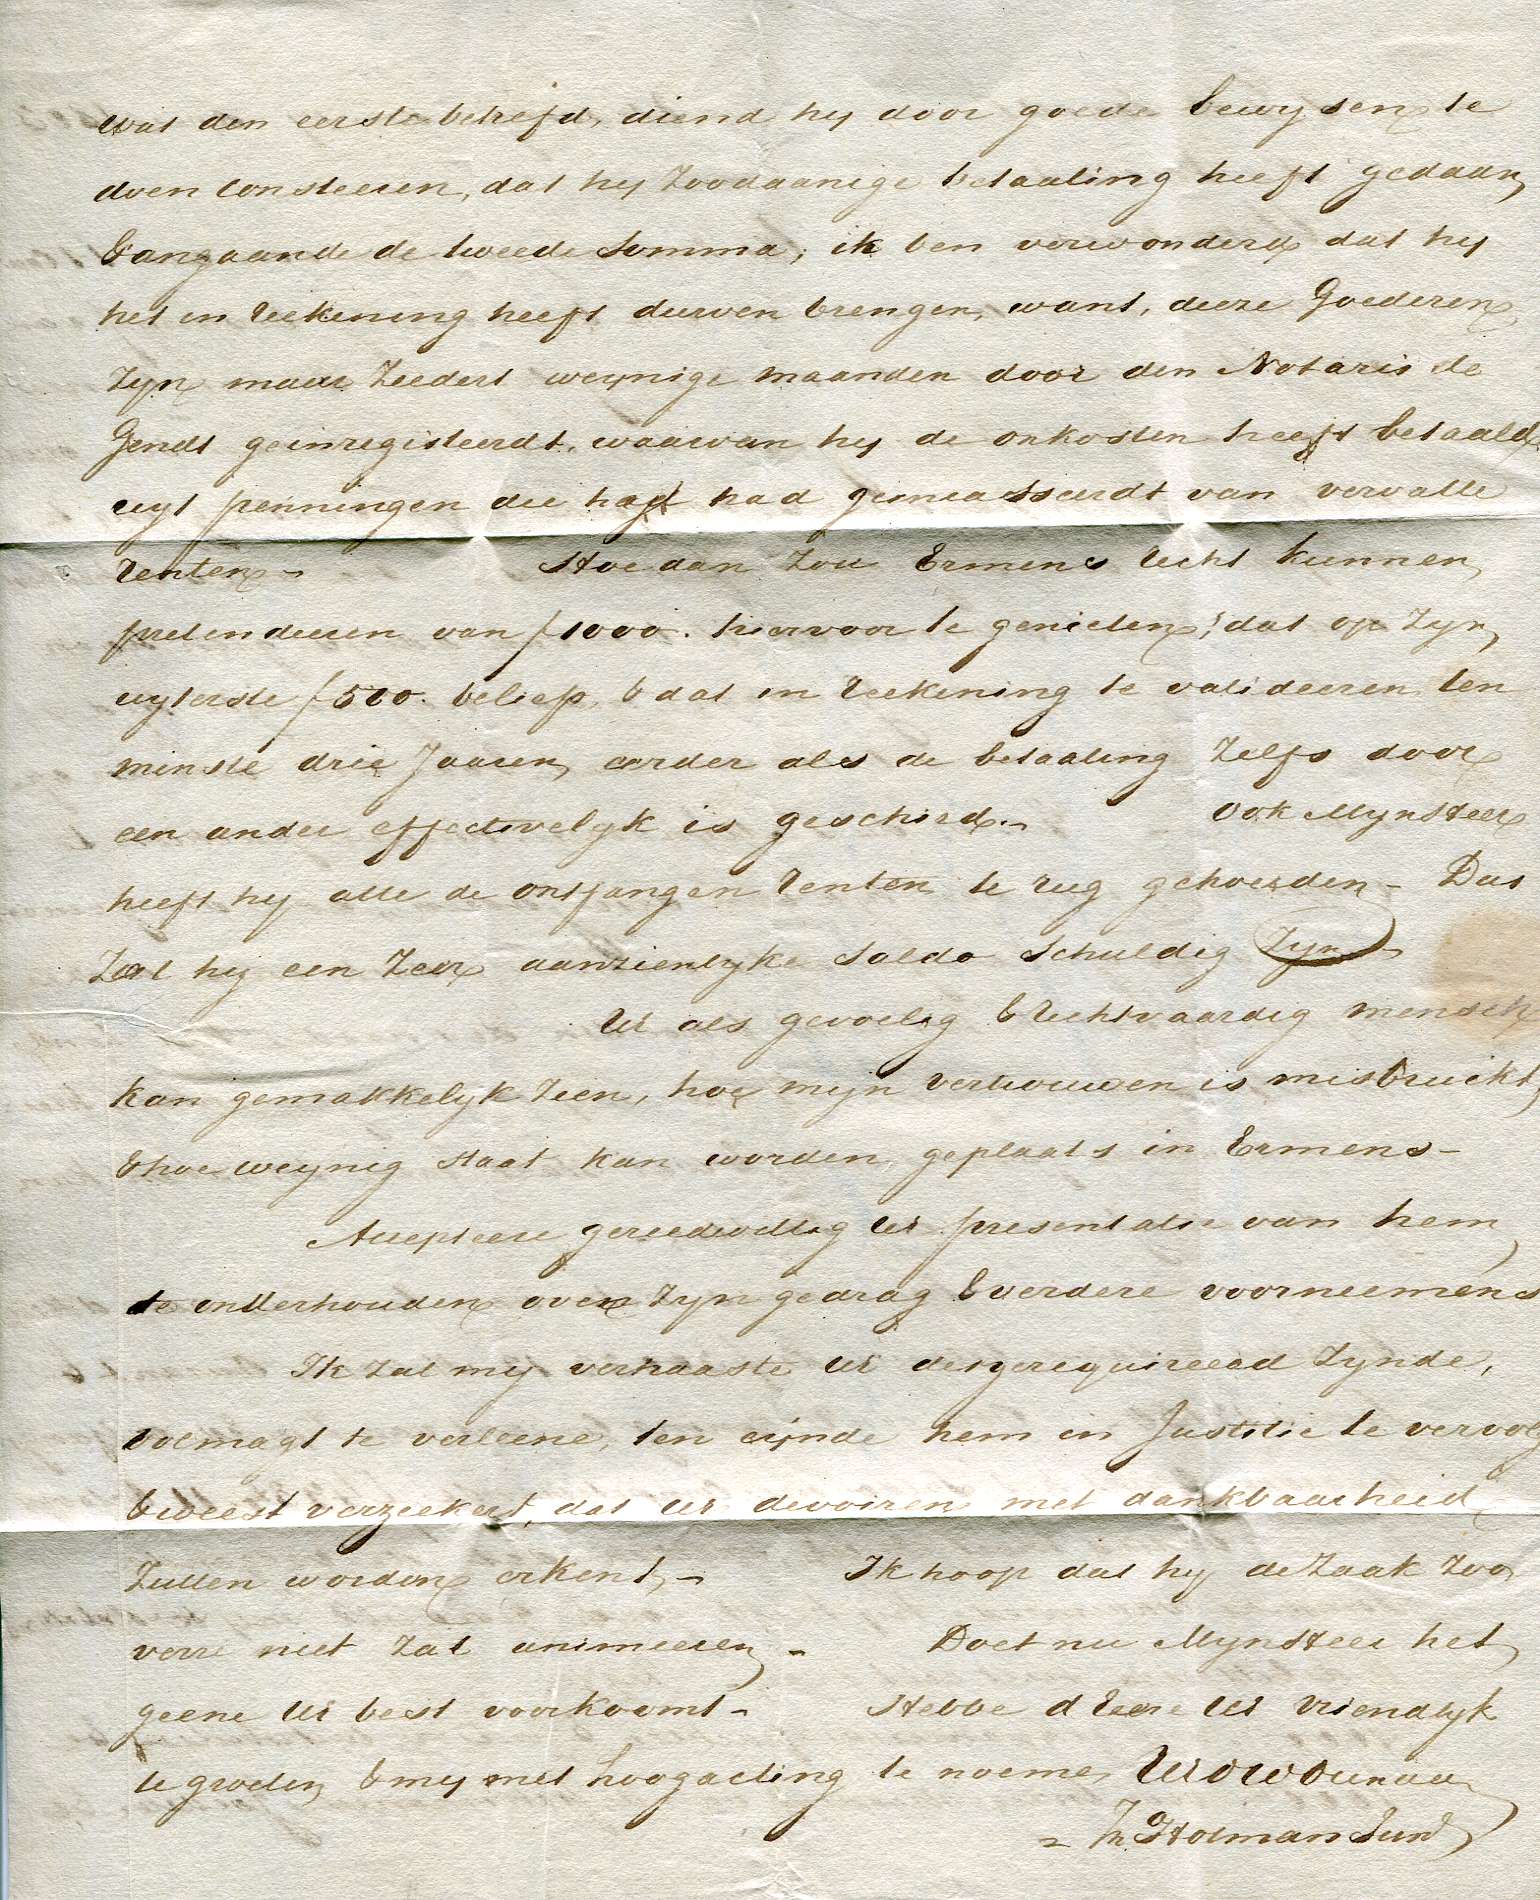 wat den eerste betrefd, diend hy door goede bewysen te
doen Consteeren, dat hy Zoodaanige betaaling heeft gedaan,
& angaande de tweede Somma, ik ben verwonderd dat hy
het in Reekening heeft durven brengen, want, deeze Goederen
Zyn maar Zeedert weynige maanden door den Notaris de
Gendt geinregisteerdt, waarvan hy de onkosten heeft betaald
uyt penningen die had geincasseerdt van vervalle
Renten - Hoe dan Zou Ermens Recht kunnen
pretendeeren van f 1000. hiervoor te genieten, dat op Zyn
uyterste f 500. beliep, & dat in Reekening te valideeren ten
minste drie Jaaren, eerder als de betaaling Zelfs door
een ander effectivelyk is geschied. - Ook MynHeer
heeft hy alle de ontfangen Renten te rug gehouden - Dus
Zal hy een Zeer aanzienlyke Saldo Schuldig Zyn
UE als gevoelig & Rechtvaardig mensch
kan gemakkelyk Zeen, hoe mijn vertrouwen is misbruikt,
& hoe weynig Staat kan worden geplaats in Ermens -
Accepteere gereedwillig UE presentatie van hem
te onderhouden over Zyn gedrag & verdere voorneemens
Ik Zal my verhaaste UE desgerequireerd Zynde,
volmagt te verleene, ten eijnde hem in Justitie te vervolg
& weest verzeekert, dat UE devoiren met dankbaarheid
Zullen worden erkent, - Ik hoop dat hy de Zaak Zoo
verre niet Zal animeeren, - Doet nu MynHeer het
geene UE best voorkoomt - Hebbe d' Eere UE Vriendlyk
te groeten, & my met hoogacting te noeme,
Holman Junr